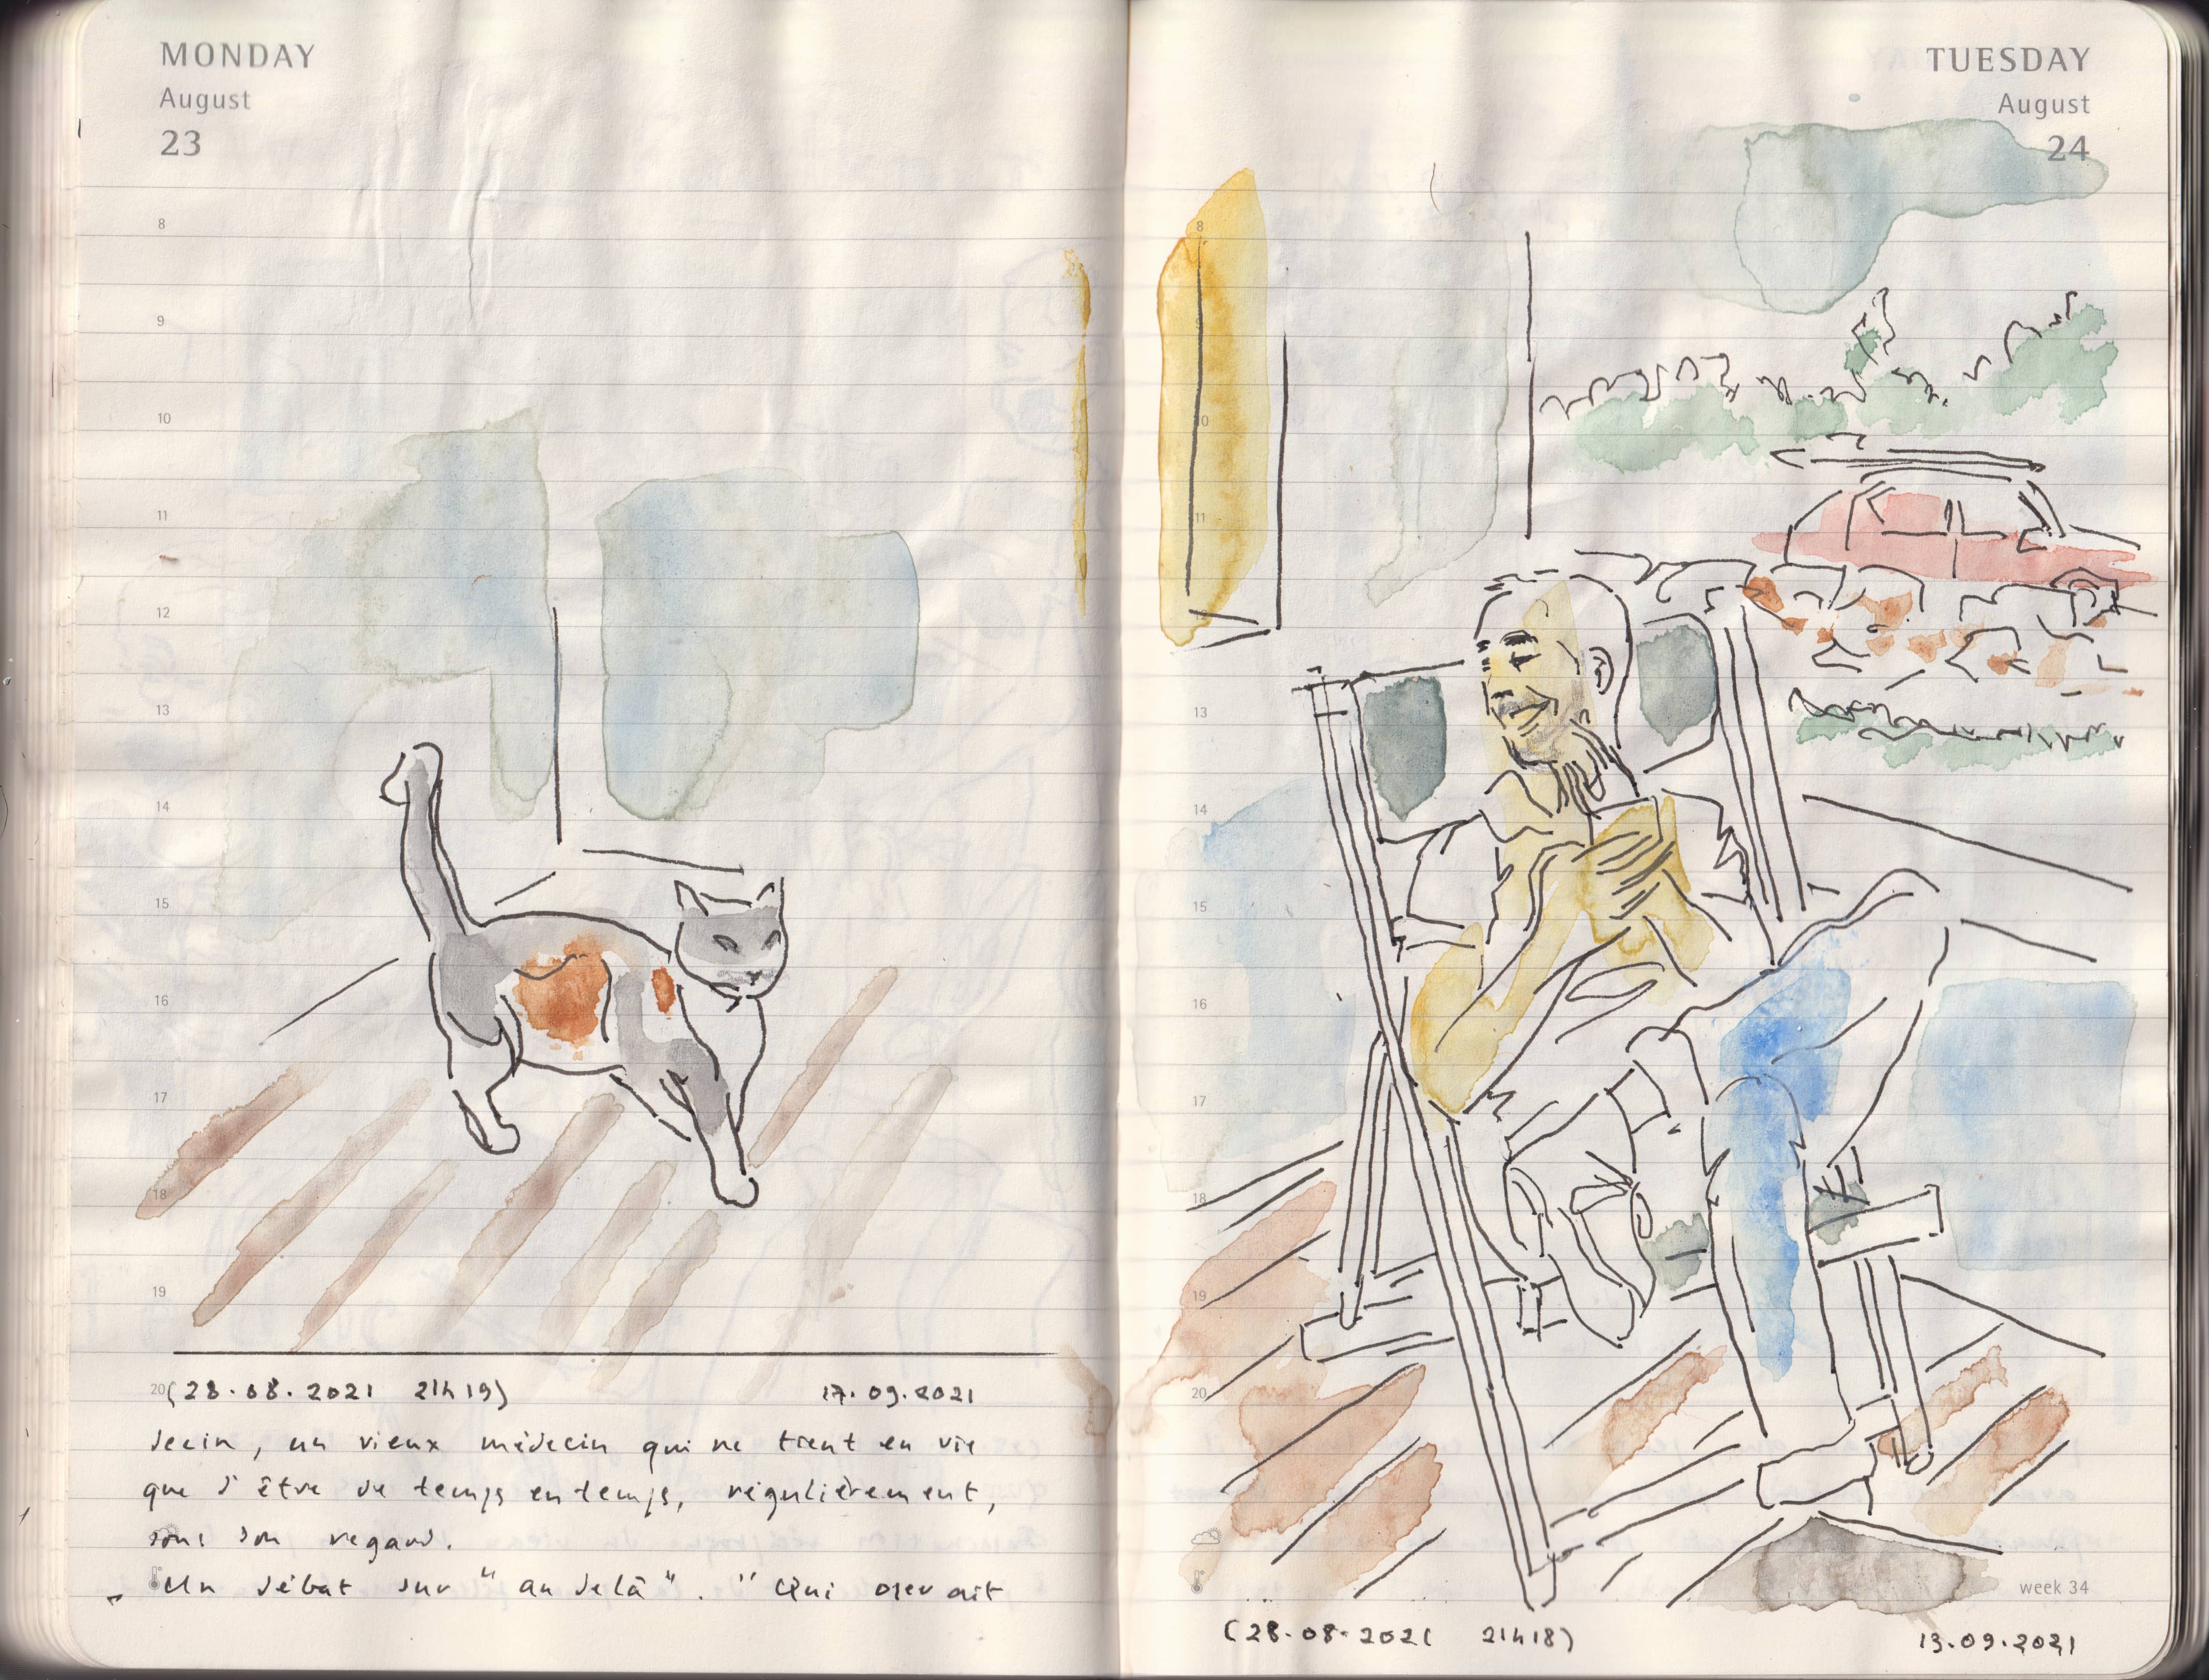 MONDAY
August
23
8
9
10
11
12
13
14
15
16
17
18
19
20
(28.08.2021 21h19) 17.09.2021
decin, un vieux médecin qui ne tient en vie
que d'être de temps en temps, régulièrement,
sous son regard.
"Un débat sur "au delà". "Qui oserait
TUESDAY
August
24
8
9
10
11
12
13
14
15
16
17
18
19
20
week 34
(28.08.2021 21h18) 13.09.2021